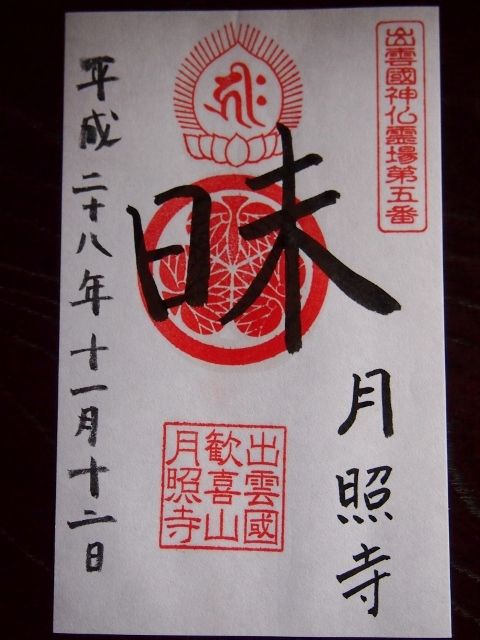 出雲國神仏霊場第五番
月照寺
昧
出雲國
歓喜山
月照寺
平成二十八年十一月十二日